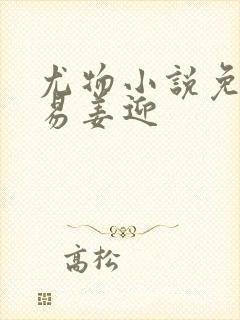 尤物小説免
易姜迎
高松